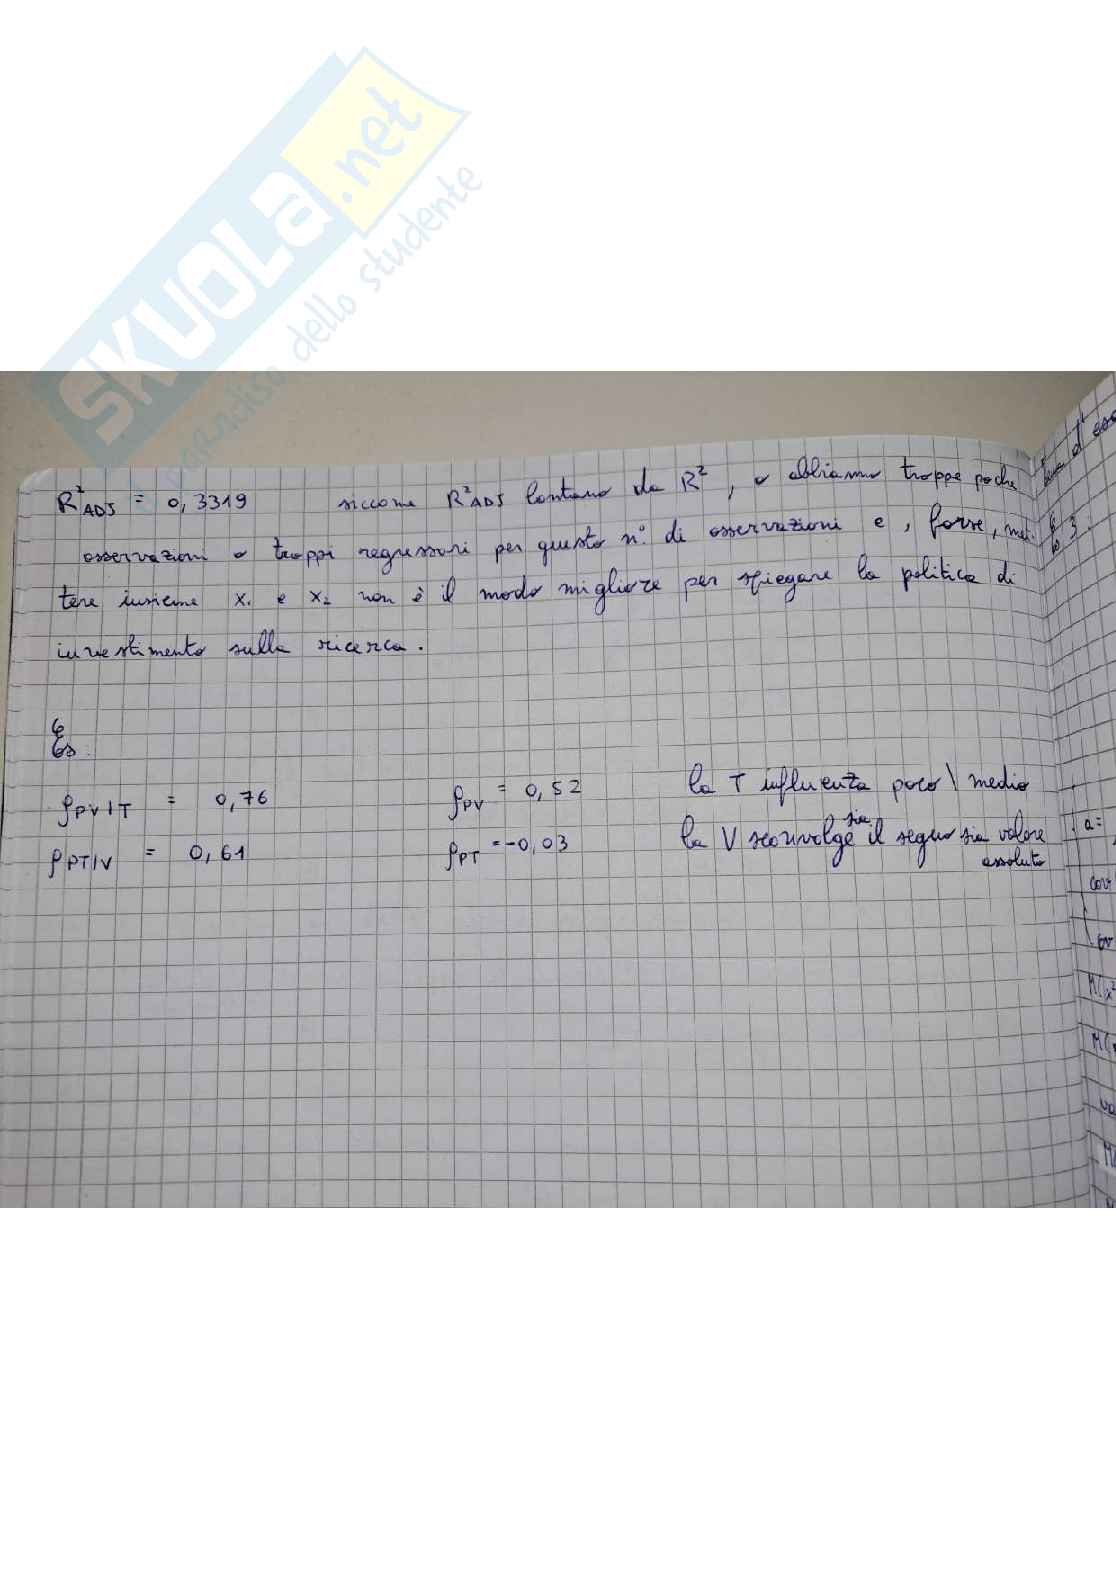 SKUOLA.net
paradiso dello studente
R²ADJ = 0,3319 siccome R²ADJ lontano da R², o abbiamo troppe poche
osservazioni o troppi regressori per questo n° di osservazioni e, forse, met-
tere insieme x₁ e x₂ non è il modo migliore per spiegare la politica di
investimento sulla ricerca.
Es.
ρPV|T = 0,76 ρPV = 0,52 la T influenza poco \ medio
ρPT|V = 0,61 ρPT = -0,03 la V sconvolge sia il segno sia valore
assoluto
3.
a =
cov